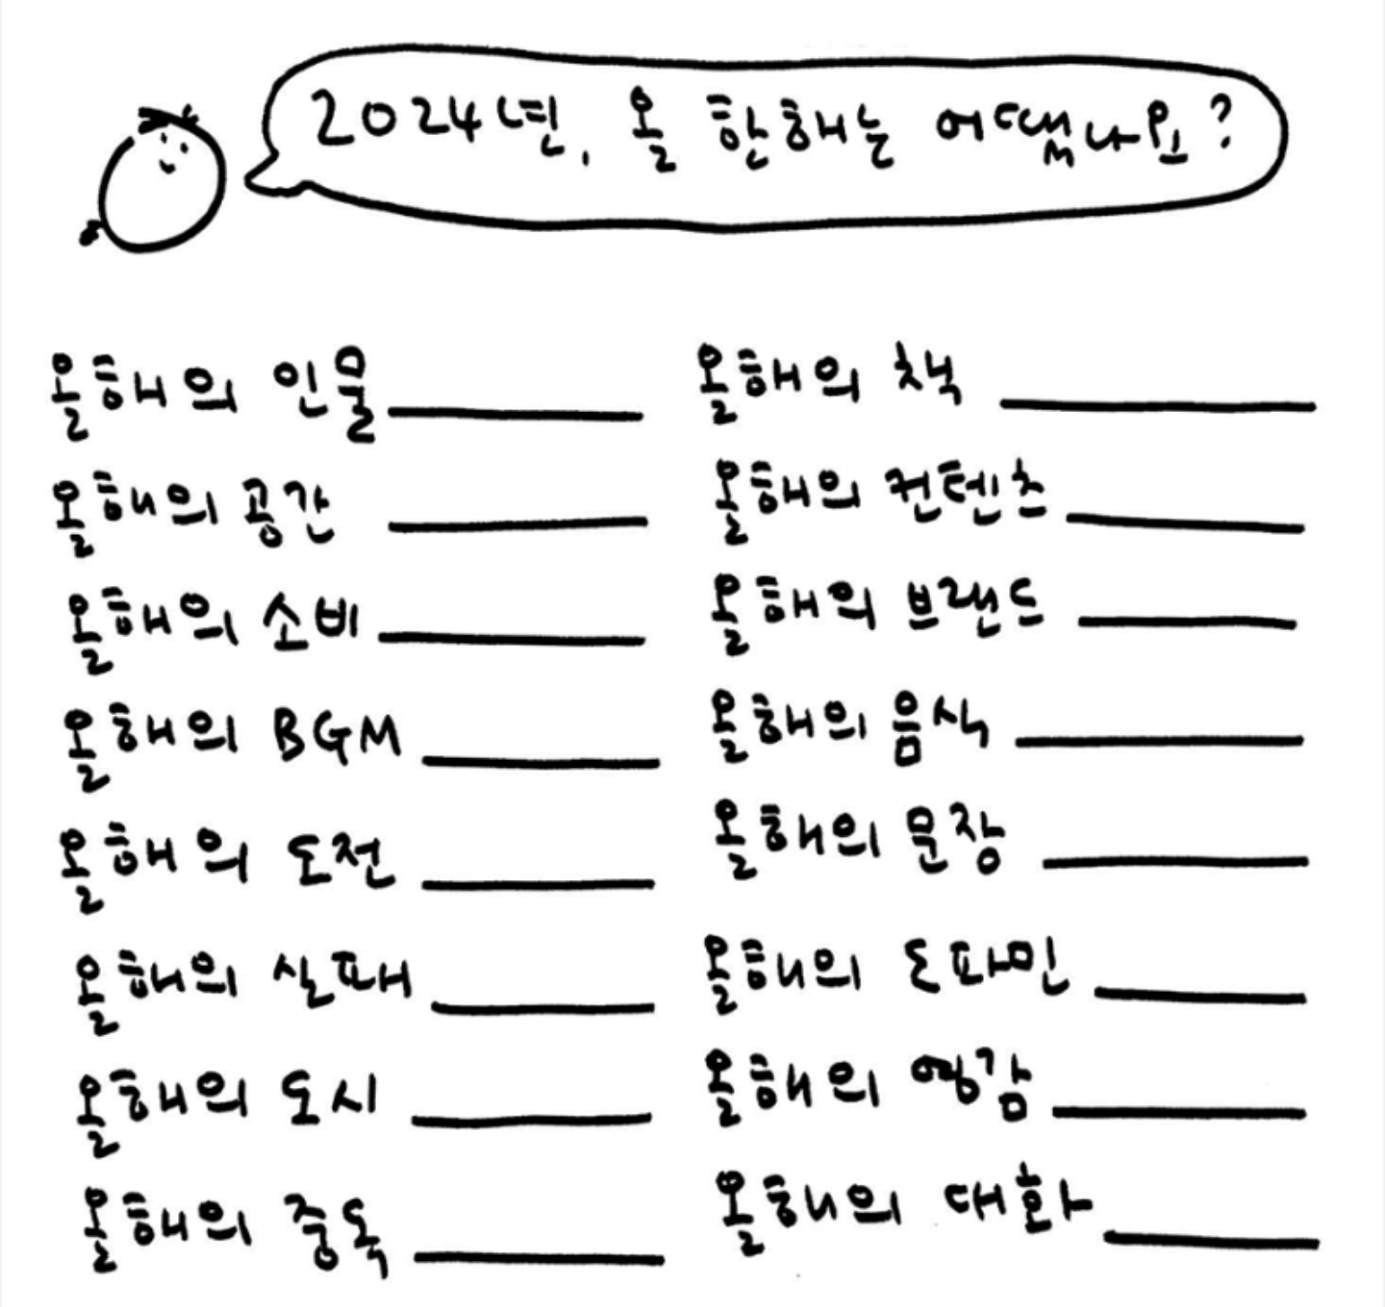 2024년, 올 한해는 어땠나요?
올해의 인물
올해의 공간
올해의 소비
올해의 BGM
올해의 도전
올해의 실패
올해의 도시
올해의 중독
올해의 책
올해의 컨텐츠
올해의 브랜드
올해의 음식
올해의 문장
올해의 도파민
올해의 영감
올해의 대화